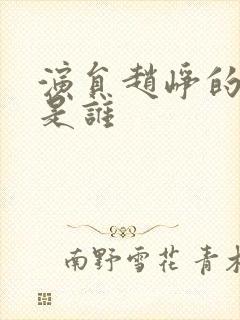 演員趙崢的
是誰
南野雪花 青木